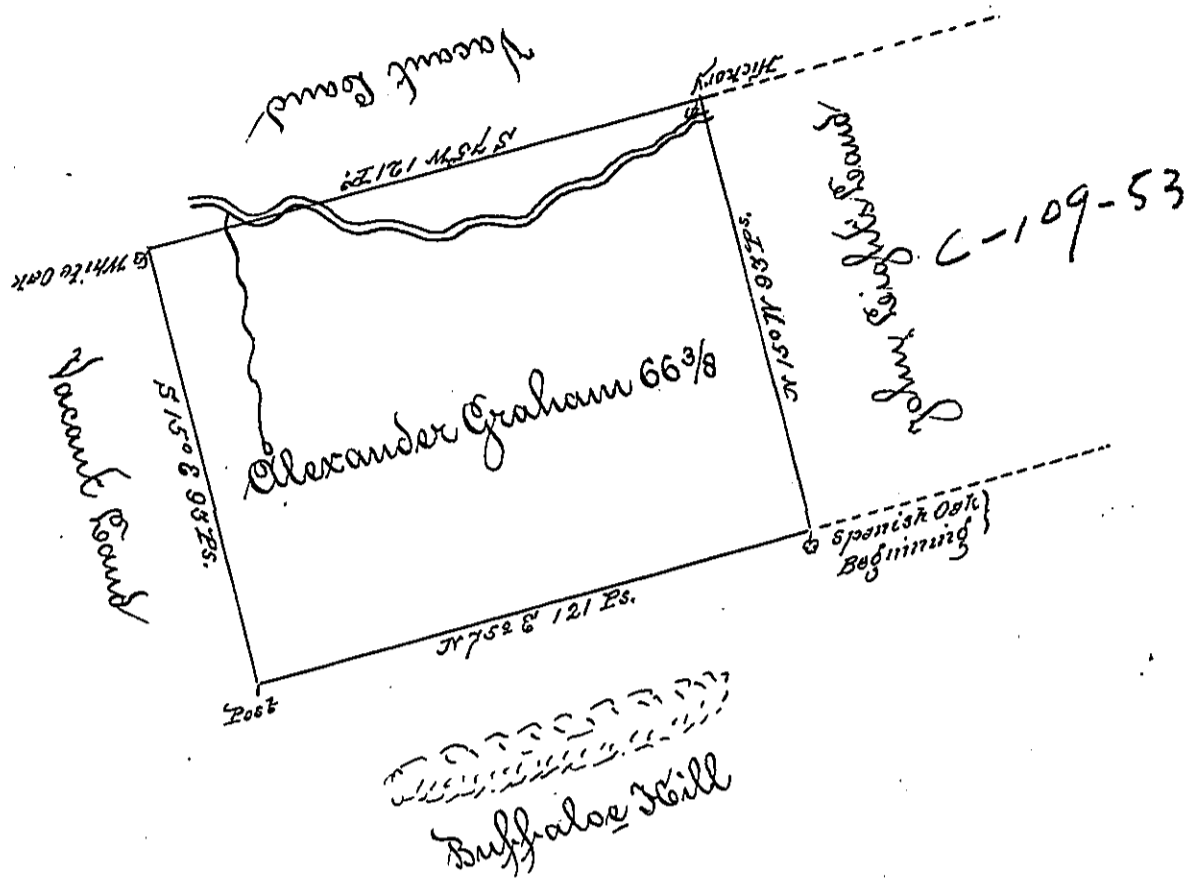 Vacant Land
Hickory
S 75 W 121 Ps
White Oak
N 15° W 93 Ps.
C-109-53
Vacant Land
S 15° E 93 Ps.
Alexander Graham 66 3/8
Spanish Oak }
Beginning
N 75° E 121 Ps.
Post
Buffaloe Hill